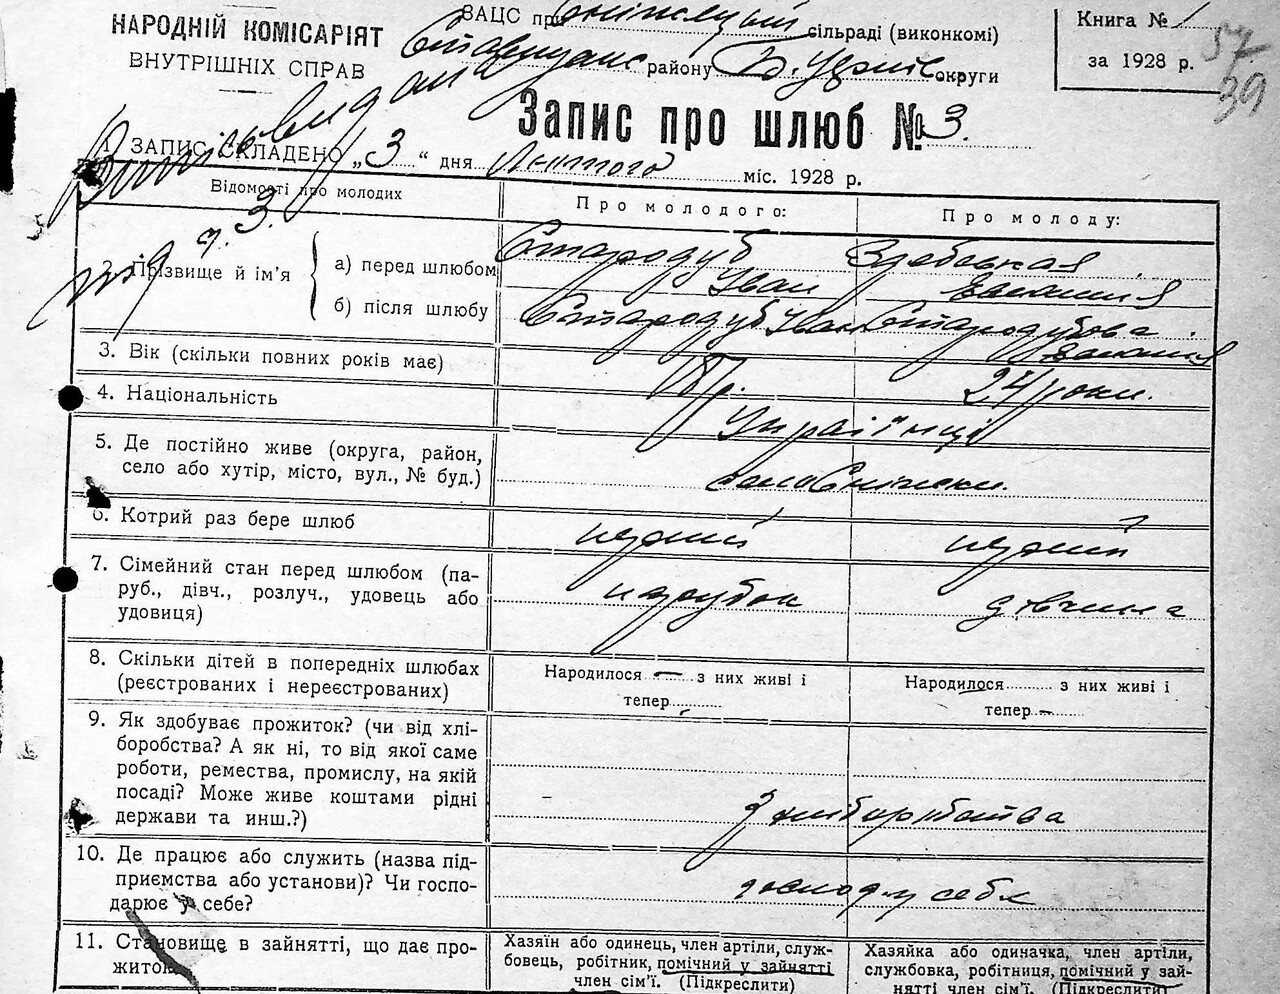 НАРОДНІЙ КОМІСАРІЯТ
ВНУТРІШНІХ СПРАВ
ЗАЦС при сільраді (виконкомі)
району округи
Книга № 1
за 1928 р.
57
39
Запис про шлюб № 3.
1. ЗАПИС СКЛАДЕНО „3“ дня Лютого міс. 1928 р.
Відомості про молодих
Про молодого:
Про молоду:
2. Прізвище й ім'я
а) перед шлюбом
Стародуб
Іван
б) після шлюбу
Стародуб Іван
Стародубова
3. Вік (скільки повних років має)
24 роки.
4. Національність
Українці
5. Де постійно живе (округа, район,
село або хутір, місто, вул., № буд.)
6. Котрий раз бере шлюб
перший
перший
7. Сімейний стан перед шлюбом (па-
руб., дівч., розлуч., удовець або
удовиця)
парубок
дівчина
8. Скільки дітей в попередніх шлюбах
(реєстрованих і нереєстрованих)
Народилося — з них живі і
тепер
Народилося з них живі і
тепер —
9. Як здобуває прожиток? (чи від хлі-
боробства? А як ні, то від якої саме
роботи, ремества, промислу, на якій
посаді? Може живе коштами рідні
держави та инш.?)
З хліборобства
10. Де працює або служить (назва під-
приємства або установи)? Чи госпо-
дарює у себе?
господ. у себе
11. Становище в зайнятті, що дає про-
житок
Хазяїн або одинець, член артіли, служ-
бовець, робітник, помічний у зайнятті
член сім'ї. (Підкреслити)
Хазяйка або одиначка, член артіли,
службовка, робітниця, помічний у зай-
нятті член сім'ї. (Підкреслити)